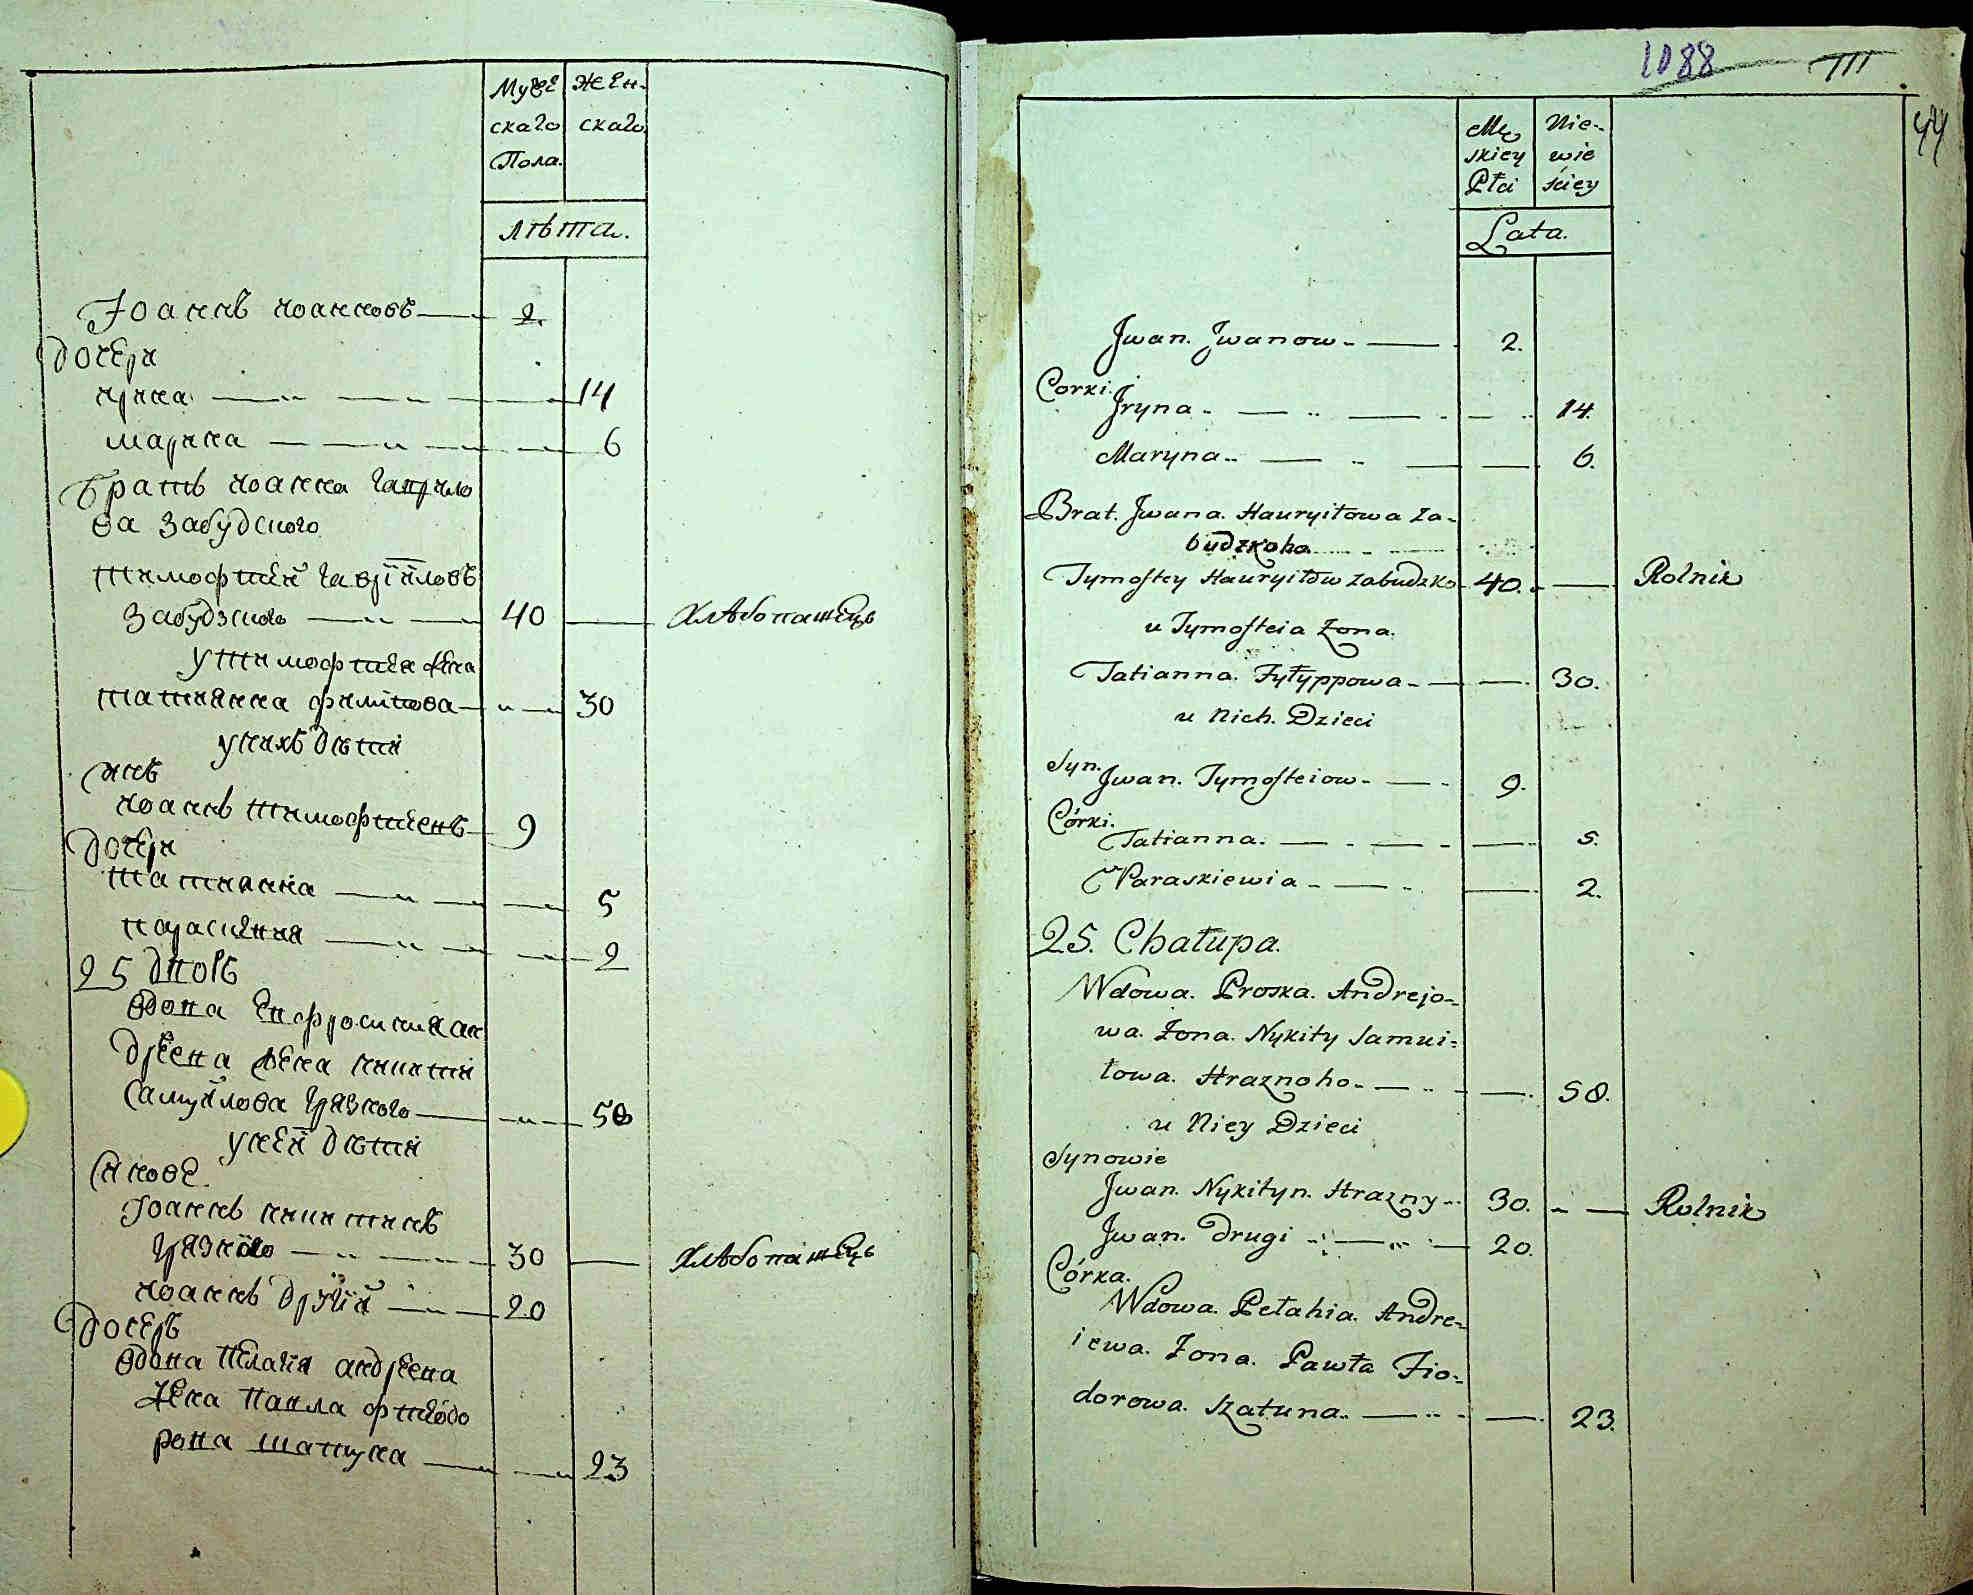 Мужескаго Пола
Женскаго
лѣта.
Іоаннъ иоанновъ 2.
дочери
ирина 14
марина 6
братъ иоанна гаврило
ва Забудского
тимофтей гавріиловъ
Забудзкио 40 хлѣбопашецъ
у тимофтея жена
татианна филипова 30
у нихъ дѣти
синъ
иоаннъ тимофтеевъ 9
дочери
татианна 5
параскевия 2
25 дворъ
вдова Евфросиния ан
дреева жена никити
Самуилова грязкого 58
у неей дѣти
синове
Іоаннъ никитинъ
грязкио 30 хлѣбопашецъ
иоаннъ другий 20
дочеръ
вдова пелагия андреева
жена павла фтеодо
рова шатуна 23
1088
III
44
Mę
skiey
Płci
Nie-
wie
ściey
Lata.
Jwan. Jwanow 2.
Corki.
Jryna 14.
Maryna 6.
Brat. Jwana. Hauryiłowa Za-
budzkoho
Tymoftey Hauryiłow Zabudzko 40. Rolnik
u Tymofteia Zona.
Tatianna. Fyłyppowa 30.
u Nich. Dzieci
Syn.
Jwan. Tymofteiow 9.
Córki.
Tatianna. 5.
Paraskiewia 2.
25. Chałupa.
Wdowa. Proska. Andrejo-
wa. Zona. Nykity Samui-
łowa. Hraznoho 58.
u Niey Dzieci
Synowie
Jwan. Nykityn. Hrazny 30. Rolnik
Jwan. Drugi 20.
Córka.
Wdowa. Pełahia. Andre-
iewa. Zona. Pawła Fio-
dorowa. Szatuna. 23.